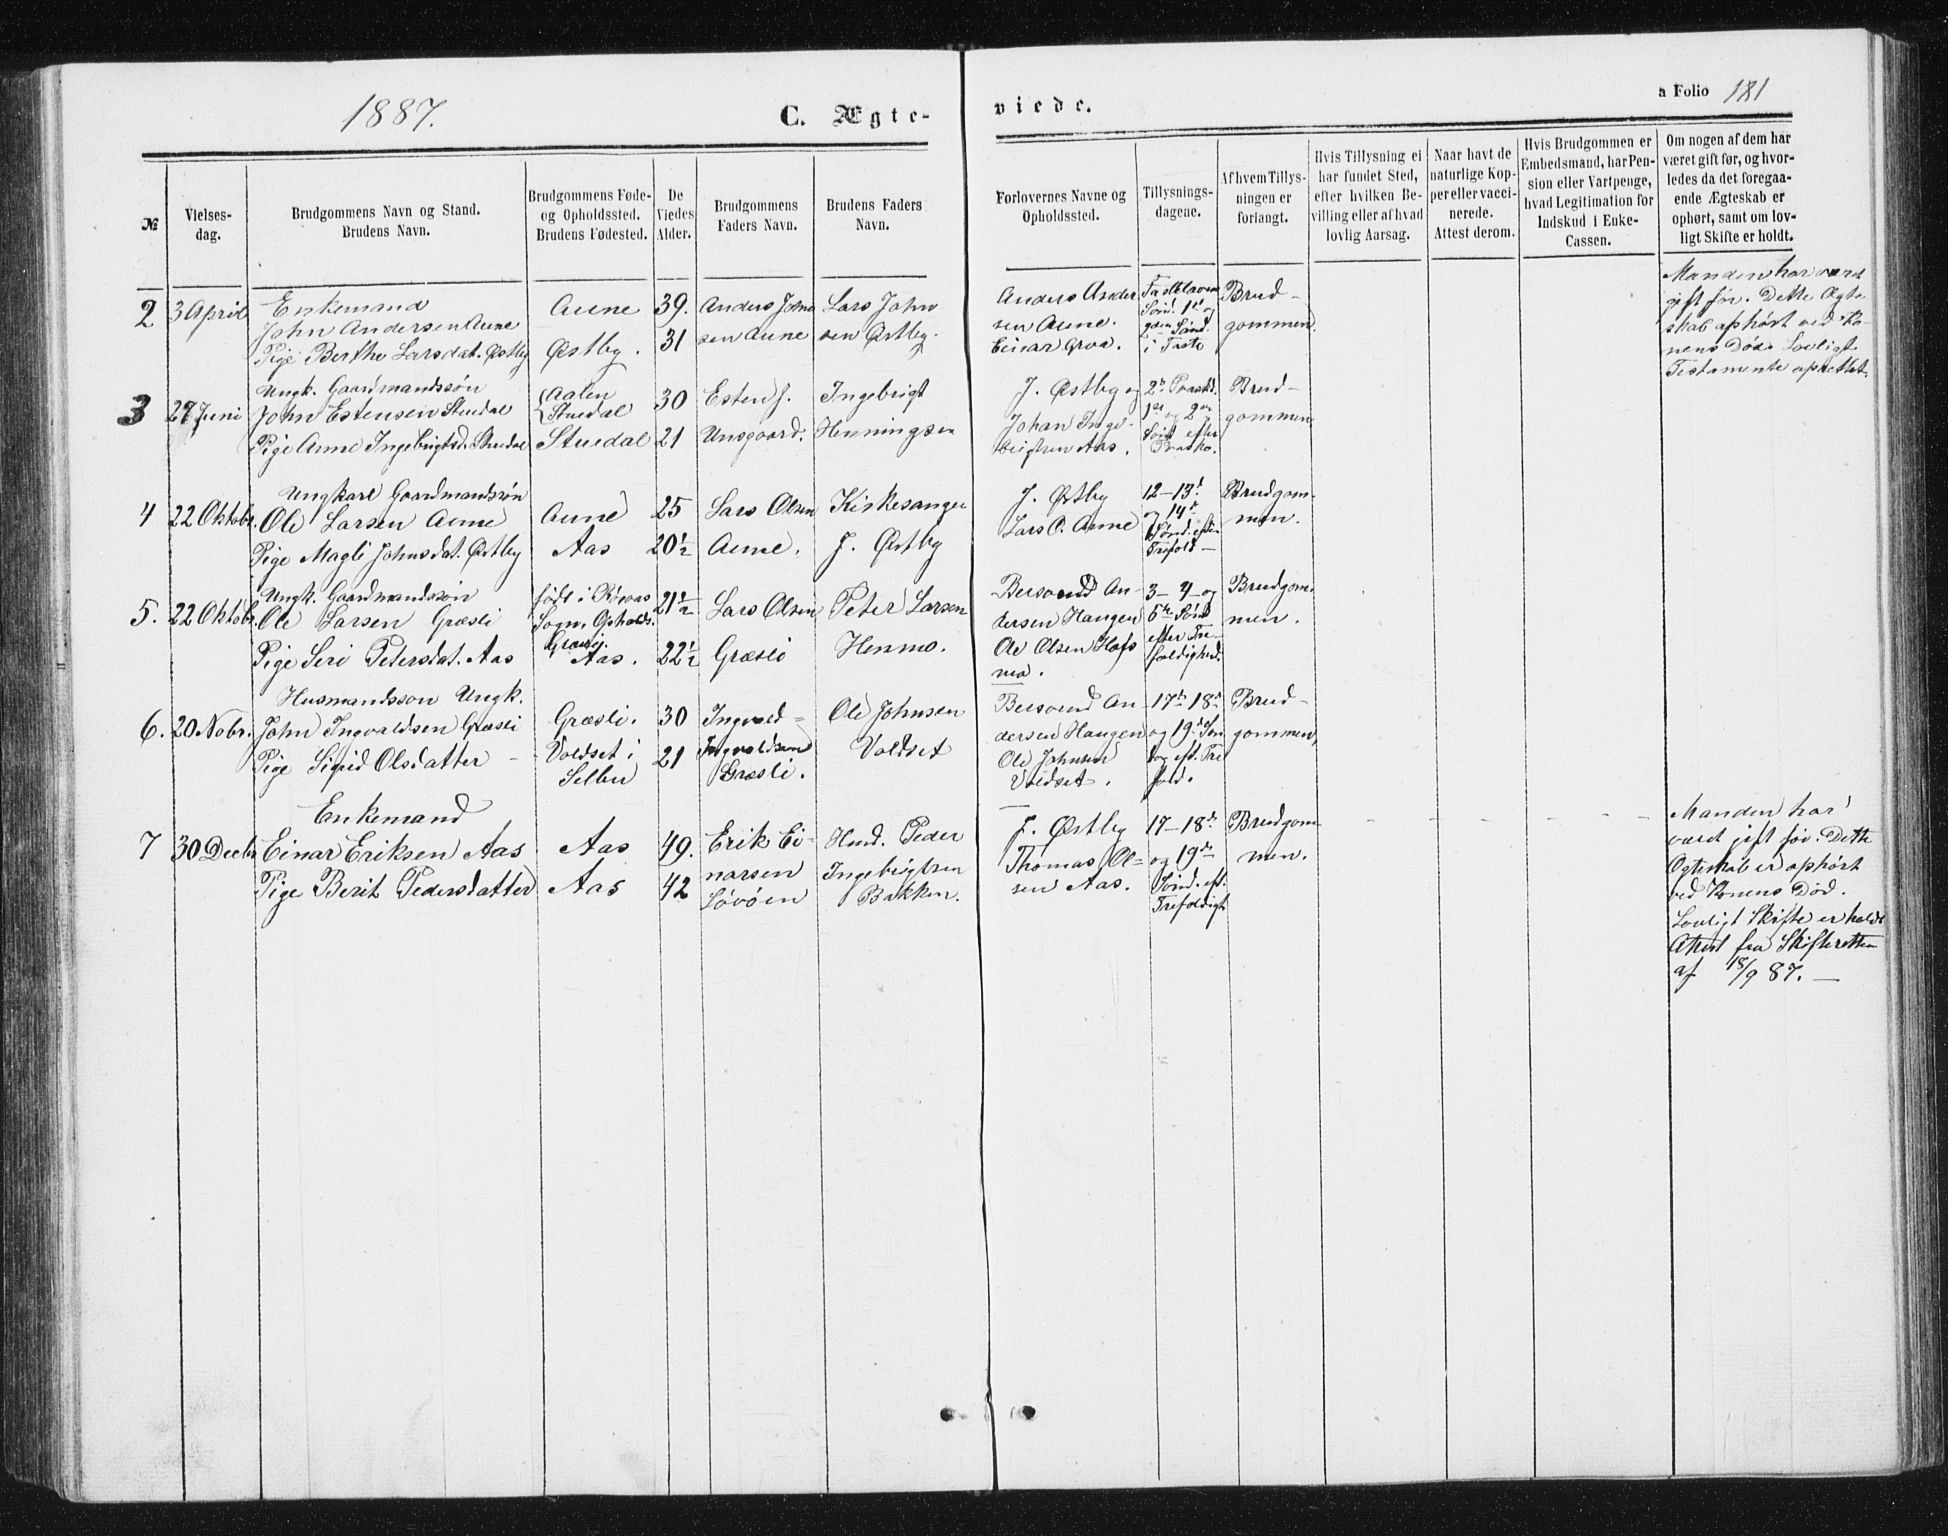 1887.
C. Ægte-
viede.
a Folio 181
№
Vielses-
dag.
Brudgommens Navn og Stand.
Brudens Navn.
Brudgommens Føde-
og Opholdssted.
Brudens Fødested.
De
Viedes
Alder.
Brudgommens
Faders Navn.
Brudens Faders
Navn.
Forlovernes Navne og
Opholdssted.
Tillysnings-
dagene.
Af hvem Tillys-
ningen er
forlangt.
Hvis Tillysning ei
har fundet Sted,
efter hvilken Be-
villing eller af hvad
lovlig Aarsag.
Naar havt de
naturlige Kop-
per eller vacci-
nerede.
Attest derom.
Hvis Brudgommen er
Embedsmand, har Pen-
sion eller Vartpenge,
hvad Legitimation for
Indskud i Enke-
Cassen.
Om nogen af dem har
været gift før, og hvor-
ledes da det foregaa-
ende Ægteskab er
ophørt, samt om lov-
ligt Skifte er holdt.
2
3 April
Enkemand
John Andersen Aune
Pige Berthe Larsdat. Østby
Aune
Østby.
39.
31
Anders John
sen Aune
Lars John
sen Østby.
Anders Ander
sen Aune.
Einar Grva.
Fastelavns
Sönd. 1ste og
2den Sönd.
i Faste
Brud-
gommen.
Manden har været
gift før. Dette Ægte
skab ophørt ved Ko-
nens Död. Lovligt
Testamente oprettet.
3
27 Juni
Ungk. Gaardmandssøn
John Estensen Stuedal
Pige Anne Ingebrigtsd. Stuedal
Aalen
Stuedal
Stuedal
30
21
Esten J.
Unsgaard.
Ingebrigt
Henningsen
J. Østby og
Johan Inge-
brigtsen Aas.
2den Paaskd.
1ste og 2den
Sönd efter
Paaske.
Brud-
gommen
4
22 Oktobr.
Ungkarl Gaardmandssøn
Ole Larsen Aune
Pige Magli Johnsdat. Østby
Aune
Aas
25
20½
Lars Olsen
Aune.
Kirkesanger
J. Østby
J. Østby
Lars O. Aune
12–13d
og 14d
Sönd. efter
Trefold–
Brudgom-
men.
5.
22 Oktobr.
Ungk. Gaardmandssøn
Ole Larsen Græsli
Pige Seri Petersdat. Aas
født i Röraas
Sogn, Opholds.
Græsli.
Aas.
21½
22½
Lars Olsen
Græsli
Peter Larsen
Henmo.
Bersvend An-
dersen Haugen
Ole Olsen Hofs
mo.
3–4– og
5te Sönd
efter Tre-
foldighed.
Brudgom-
men.
6.
20 Nobr.
Husmandsson Ungk.
John Ingvaldsen Græsli
Pige Sigrid Olsdatter –
Græsli.
Voldset i
Selbu
30
21
Ingvald=
Ingvaldsen
Græsli.
Ole Johnsen
Voldset
Bersvend An-
dersen Haugen
Ole Johnsen
Voldset.
17de 18de
og 19d Sön
dag eft. Tre
fold.
Brud-
gommen,
7
30 Decbr
Enkemand
Einar Eriksen Aas
Pige Berit Pedersdatter
Aas
Aas
49.
42
Erik Ei-
narsen
Løvöen
Husd. Peder
Ingebrigtsen
Bakken.
J. Østby
Thomas Ol=
sen Aas.
17–18de
og 19de
Sönd. eft.
Trefoldigh
Brudgom-
men.
– – – – –
Manden har
været gift før. Dette
Ægteskab er ophørt
ved Konens Död.
Lovligt Skifte er holdt
Attest fra Skifteretten
af 18/9 87. –